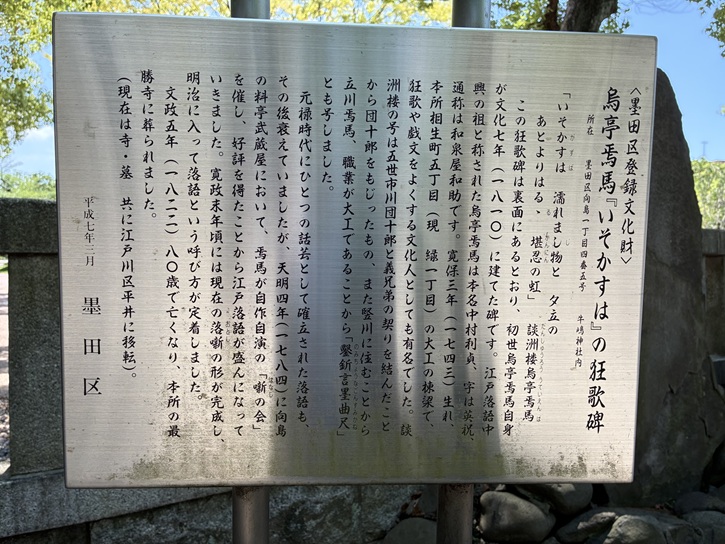 〈墨田区登録文化財〉
烏亭焉馬『いそかすは』の狂歌碑
所在 墨田区向島一丁目四番五号 牛嶋神社内
「いそかすは 濡れまし物と 夕立の
あとよりはる、 堪忍の虹」 談洲楼烏亭焉馬
この狂歌碑は裏面にあるとおり、初世烏亭焉馬自身
が文化七年(一八一〇)に建てた碑です。江戸落語中
興の祖と称された烏亭焉馬は本名中村利貞、字は英祝、
通称は和泉屋和助です。寛保三年(一七四三)生れ、
本所相生町五丁目(現 緑一丁目)の大工の棟梁で、
狂歌や戯文をよくする文化人としても有名でした。談
洲楼の号は五世市川団十郎と義兄弟の契りを結んだこと
から団十郎をもじったもの、また竪川に住むことから
立川焉馬、職業が大工であることから「鑿釿言墨曲尺」
とも号しました。
元禄時代にひとつの話芸として確立された落語も、
その後衰えていましたが、天明四年(一七八四)に向島
の料亭武蔵屋において、焉馬が自作自演の「噺の会」
を催し、好評を得たことから江戸落語が盛んになって
いきました。寛政末年頃には現在の落噺の形が完成し、
明治に入って落語という呼び方が定着しました。
文政五年(一八二二)八〇歳で亡くなり、本所の最
勝寺に葬られました。
(現在は寺・墓 共に江戸川区平井に移転)。
平成七年三月
墨田区